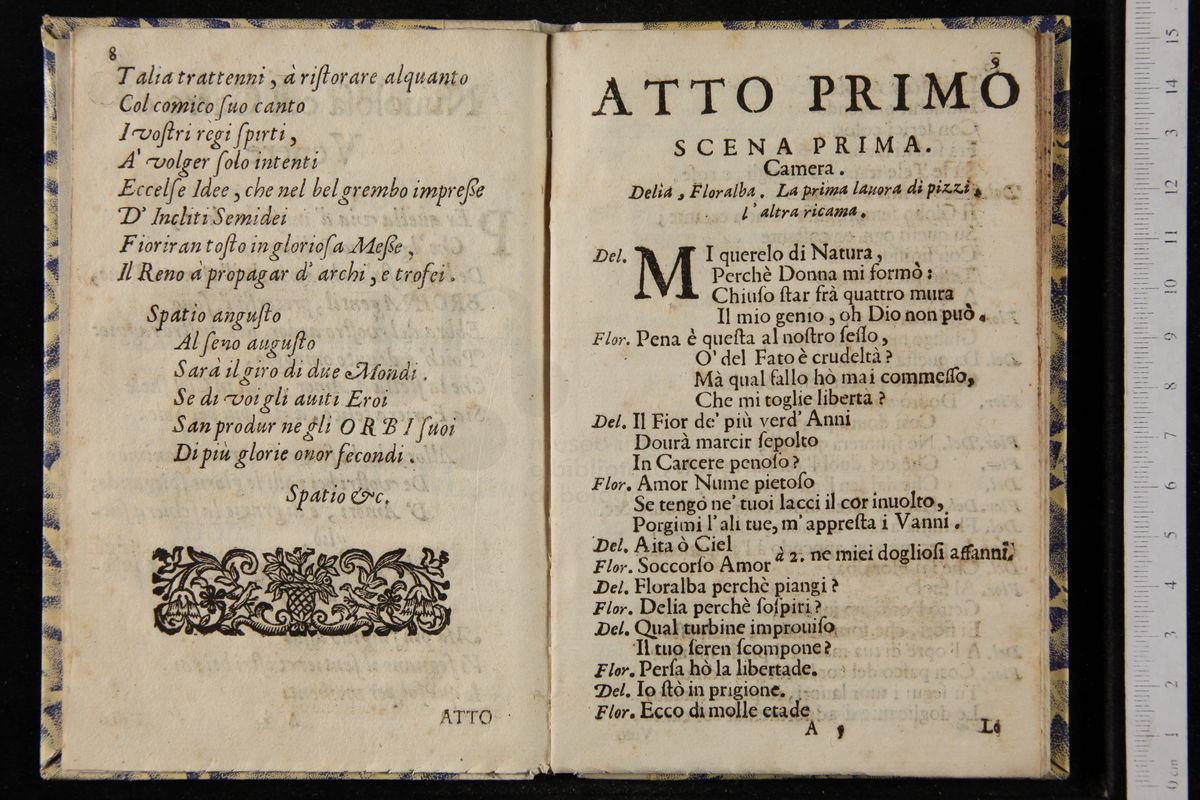 8
Talia trattenni, à riſtorare alquanto
Col comico ſuo canto
I voſtri regi ſpirti,
A' volger ſolo intenti
Eccelſe Idee, che nel bel grembo impreſſe
D' Incliti Semidei
Fioriran toſto in glorioſa Meſſe,
Il Reno à propagar d' archi, e trofei.
Spatio anguſto
Al ſeno auguſto
Sarà il giro di due Mondi.
Se di voi gli aviti Eroi
San produr ne gli ORBI ſuoi
Di più glorie onor fecondi.
Spatio &c.
ATTO
9
ATTO PRIMO
SCENA PRIMA.
Camera.
Delia, Floralba. La prima lauora di pizzi,
l' altra ricama.
Del. MI querelo di Natura,
Perchè Donna mi formò:
Chiuſo ſtar frà quattro mura
Il mio genio, oh Dio non può.
Flor. Pena è queſta al noſtro ſeſſo,
O' del Fato è crudeltà?
Mà qual fallo hò mai commeſſo,
Che mi toglie liberta?
Del. Il Fior de' più verd' Anni
Dourà marcir ſepolto
In Carcere penoſo?
Flor. Amor Nume pietoſo
Se tengo ne' tuoi lacci il cor inuolto,
Porgimi l' ali tue, m' appreſta i Vanni.
Del. Aita ò Ciel
Flor. Soccorſo Amor à 2. ne miei doglioſi affanni.
Del. Floralba perchè piangi?
Flor. Delia perchè ſoſpiri?
Del. Qual turbine improuiſo
Il tuo ſeren ſcompone?
Flor. Perſa hò la libertade.
Del. Io ſtò in prigione.
Flor. Ecco di molle etade
A 5 Lo